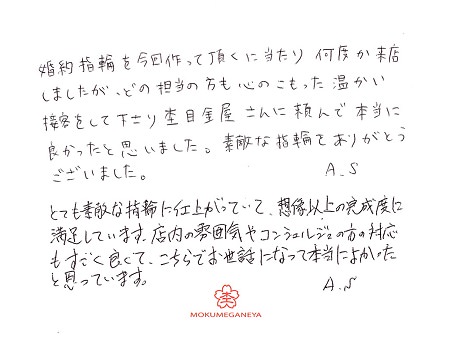 婚約指輪を今回作って頂くに当たり 何度か来店
しましたが、どの担当の方も心のこもった温かい
接客をして下さり杢目金屋さんに頼んで本当に
良かったと思いました。素敵な指輪をありがとう
ございました。 A.S
とても素敵な指輪に仕上がっていて、想像以上の完成度に
満足しています。店内の雰囲気やコンシェルジュの方の対応
もすごく良くて、こちらでお世話になって本当によかった
と思っています。 A.S
MOKUMEGANEYA